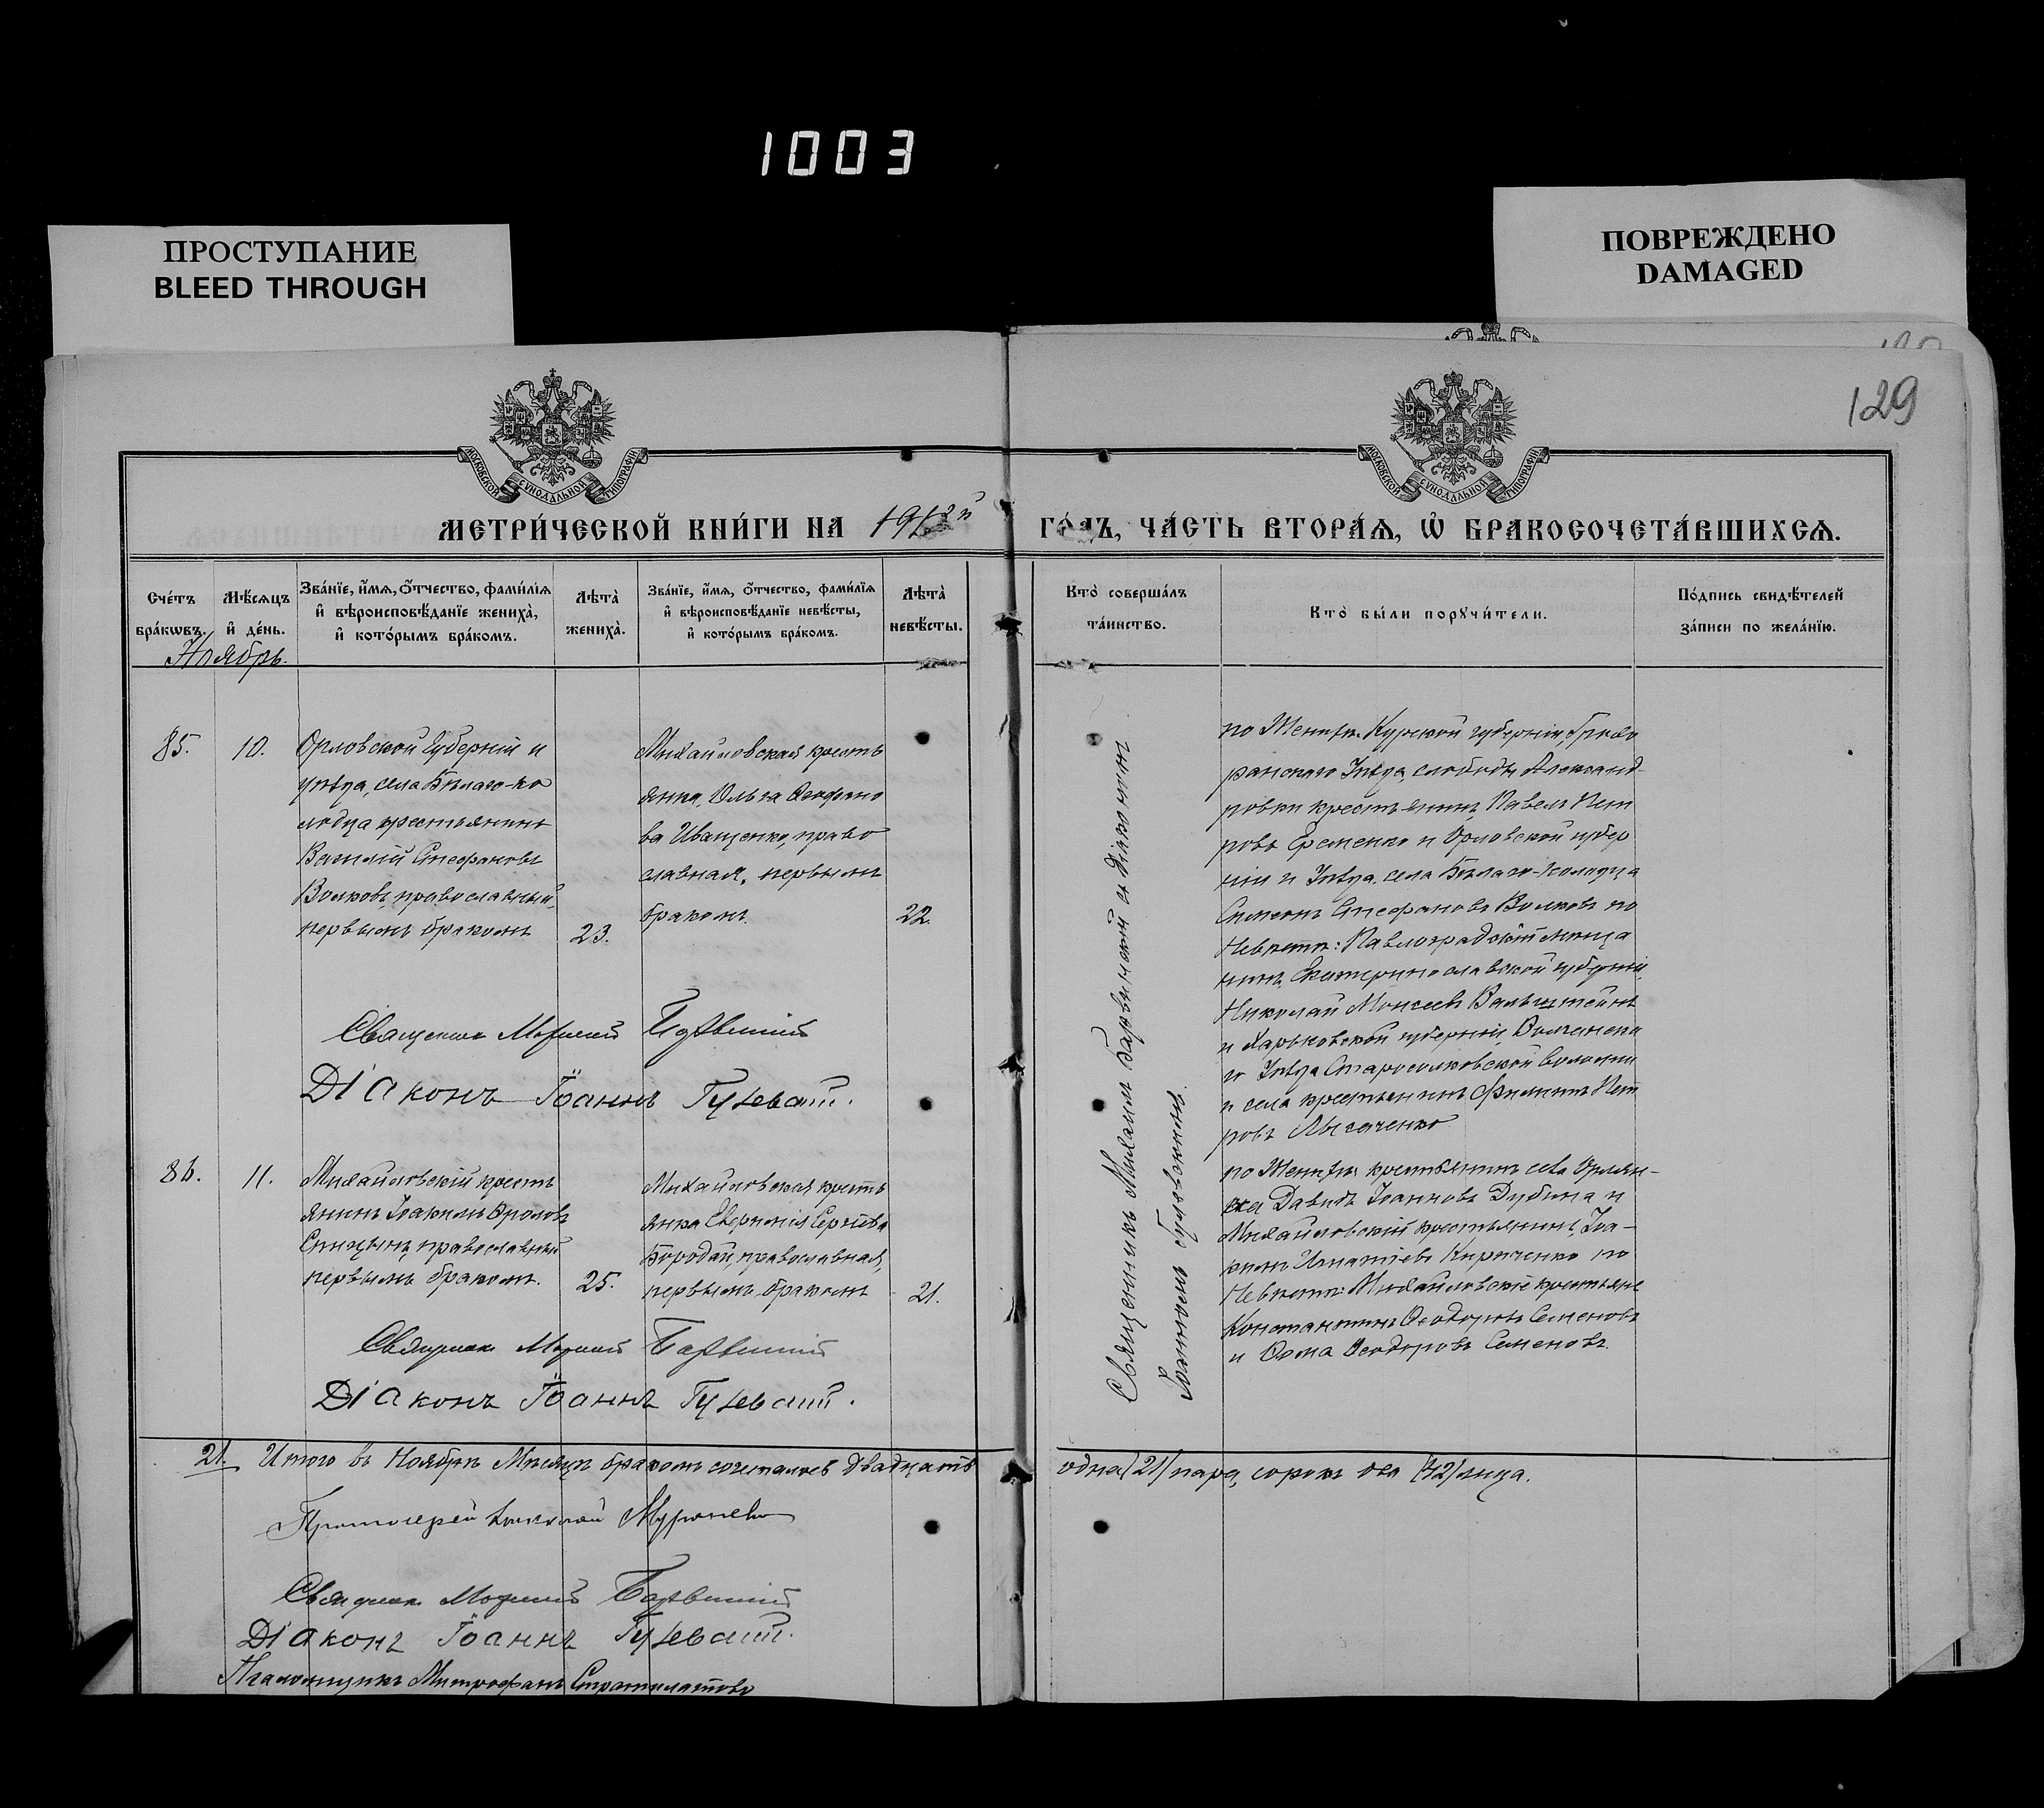 1003
ПРОСТУПАНИЕ
BLEED THROUGH
ПОВРЕЖДЕНО
DAMAGED
129
МОСКОВСКОЙ СѴНОДАЛЬНОЙ ТИПОГРАФІИ
МОСКОВСКОЙ СѴНОДАЛЬНОЙ ТИПОГРАФІИ
МЕТРИ́ЧЕСКОЙ КНИ́ГИ НА 191
ГО́ДЪ, ЧА́СТЬ ВТОРА́Ѧ, Ѽ БРАКОСОЧЕТА́ВШИХСѦ.
Сче́тъ бра́кѡвъ.
Мѣ́сѧцъ и҆ де́нь.
Зва́нїе, и҆́мѧ, ѻ҆́тчество, фами́лїѧ и҆ вѣроисповѣ́данїе жениха̀, и҆ кото́рымъ бра́комъ.
Лѣта̀ жениха̀.
Зва́нїе, и҆́мѧ, ѻ҆́тчество, фами́лїѧ и҆ вѣроисповѣ́данїе невѣ́сты, и҆ кото́рымъ бра́комъ.
Лѣта̀ невѣ́сты.
Кто̀ соверша́лъ та́инство.
Кто̀ бы́ли порꙋчи́тели.
По́дпись свидѣ́телей за́писи по жела́нїю.
Ноябрь.
85.
10.
Орловской губерніи и
уѣзда, села Бѣлаго-ко
лодца крестьянинъ
Василій Стефановъ
Волковъ, православный,
первымъ бракомъ
23.
Михайловская кресть
янка, Ольга Ѳеофано
ва Иващенко, право
славная, первымъ
бракомъ.
22.
Священникъ Михаилъ Барвинскій и Діаконъ
Іоанномъ
по Женихѣ: Курской губерніи, Грайво
ронскаго Уѣзда, слободы Александ-
ровки крестьянинъ, Павелъ Пет
ровъ Еременко и Орловской губер
ніи и Уѣзда, села Бѣлаго-Колодца
Симеонъ Стефановъ Волковъ по
Невѣстѣ: Павлоградскій мѣща
нинъ, Екатеринославской губерніи,
Николай Моисеевъ Вальштейнъ
и Харьковской губерніи, Волчанска
го Уѣзда волости
и села крестьянинъ Филиппъ Пет
ровъ Лысаченко
Священникъ Барвинскій
Діаконъ Іоаннъ
86.
11.
Михайловскій кресть
янинъ Іоакимъ Фроловъ
Спицынъ, православный
первымъ бракомъ.
25.
Михайловская кресть
янка Евфимія Сергѣева
Бородай, православная,
первымъ бракомъ
21.
по Женихѣ: крестьянинъ села Орлян-
ска Давидъ Іоанновъ Дубина и
Михайловскій крестьянинъ, Іоа-
кимъ Игнатіевъ Кириченко по
Невѣстѣ: Михайловскіе крестьяне
Константинъ Ѳеодоровъ Семеновъ
и Ѳома Ѳеодоровъ Семеновъ.
Священникъ Барвинскій
Діаконъ Іоаннъ
21. Итого въ Ноябрѣ Мѣсяцѣ бракомъ сочеталось двадцать
одна (21) пара, сорокъ два (42) лица.
Протоіерей Николай
Священникъ Барвинскій
Діаконъ Іоаннъ
Псаломщикъ Митрофанъ Стратилатовъ